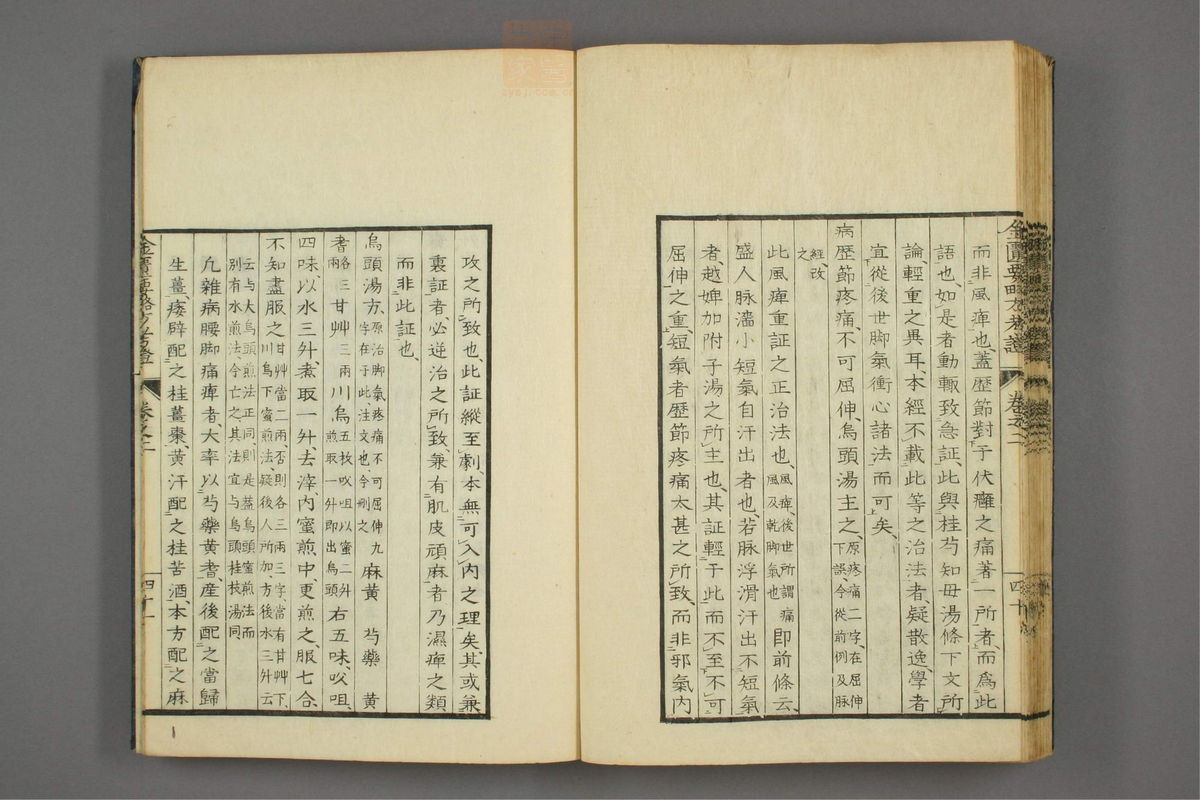 金匱要略方考證 卷之二 四十
而非風痺也蓋歷節對于伏癰之痛著一所者而爲此
語也如是者動輒致急証此與桂芍知毋湯條下文所
論輕重之異耳本經不載此等之治法者疑散逸學者
宜從後世脚氣衝心諸法而可矣
病歷節疼痛不可屈伸烏頭湯主之原疼痛二字在屈伸下誤今從前例及脉
經改之
此風痺重証之正治法也風痺後世所謂痛風及乾脚氣也即前條云
盛人脉濇小短氣自汗出者也若脉浮滑汗出不短氣
者越婢加附子湯之所主也其証輕于此而不至不可
屈伸之重短氣者歷節疼痛太甚之所致而非邪氣內
攻之所致也此証縱至劇本無可入內之理矣其或兼
裏証者必逆治之所致兼有肌皮頑麻者乃濕痺之類
而非此証也
烏頭湯方原治脚氣疼痛不可屈伸九字在于此注文也今刪之麻黄 芍藥 黄
耆各三兩甘艸三兩川烏五枚㕮咀以蜜二升煎取一升即出烏頭右五味㕮咀
四味以水三升煮取一升去滓內蜜煎中更煎之服七合
不知盡服之甘艸當二兩否則各三兩三字當有甘艸下川烏下蜜煎法疑後人所加方後水三升云
云与大烏頭煎法正同則是蓋烏頭蜜煎法而別有水煎法今亡之其法宜与烏頭桂枝湯同
凢雜病腰脚痛痺者大率以芍藥黄耆產後配之當歸
生薑痿躄配之桂薑棗黄汗配之桂苦酒本方配之麻
金匱要略方考證 卷之二 四十一